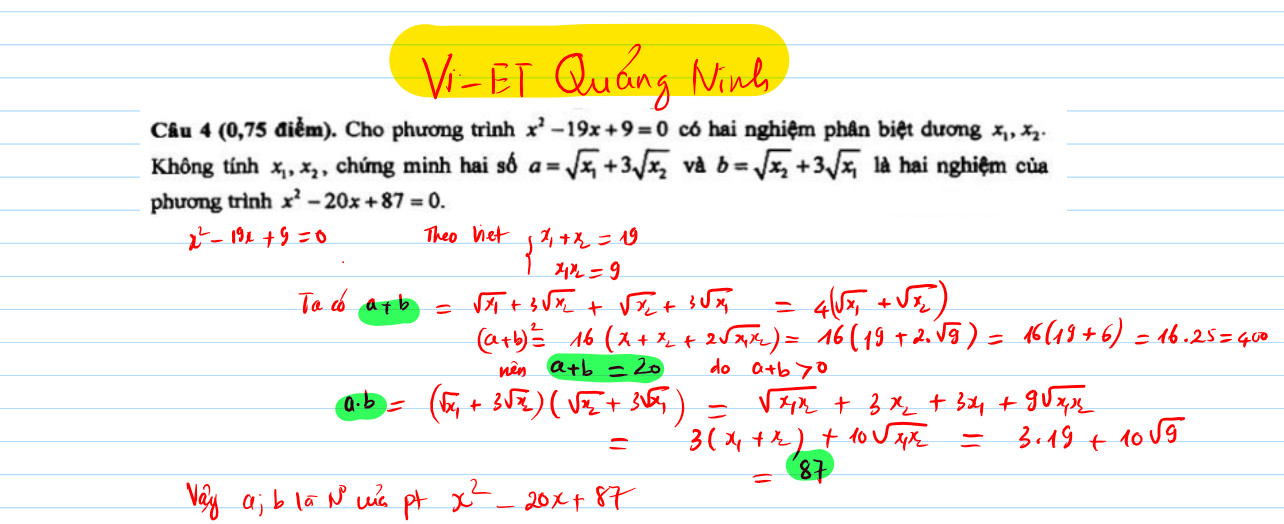 Vi-ET Quảng Ninh
Câu 4 (0,75 điểm). Cho phương trình x² − 19x + 9 = 0 có hai nghiệm phân biệt dương x₁, x₂.
Không tính x₁, x₂, chứng minh hai số a = √x₁ + 3√x₂ và b = √x₂ + 3√x₁ là hai nghiệm của
phương trình x² − 20x + 87 = 0.
x² − 19x + 9 = 0 Theo Viet { x₁ + x₂ = 19
x₁x₂ = 9
Ta có a + b = √x₁ + 3√x₂ + √x₂ + 3√x₁ = 4(√x₁ + √x₂)
(a+b)² = 16(x₁ + x₂ + 2√x₁x₂) = 16(19 + 2.√9) = 16(19 + 6) = 16.25 = 400
nên a + b = 20 do a + b > 0
a.b = (√x₁ + 3√x₂)(√x₂ + 3√x₁) = √x₁x₂ + 3x₂ + 3x₁ + 9√x₁x₂
= 3(x₁ + x₂) + 10√x₁x₂ = 3.19 + 10√9
= 87
Vậy a; b là N⁰ của pt x² − 20x + 87